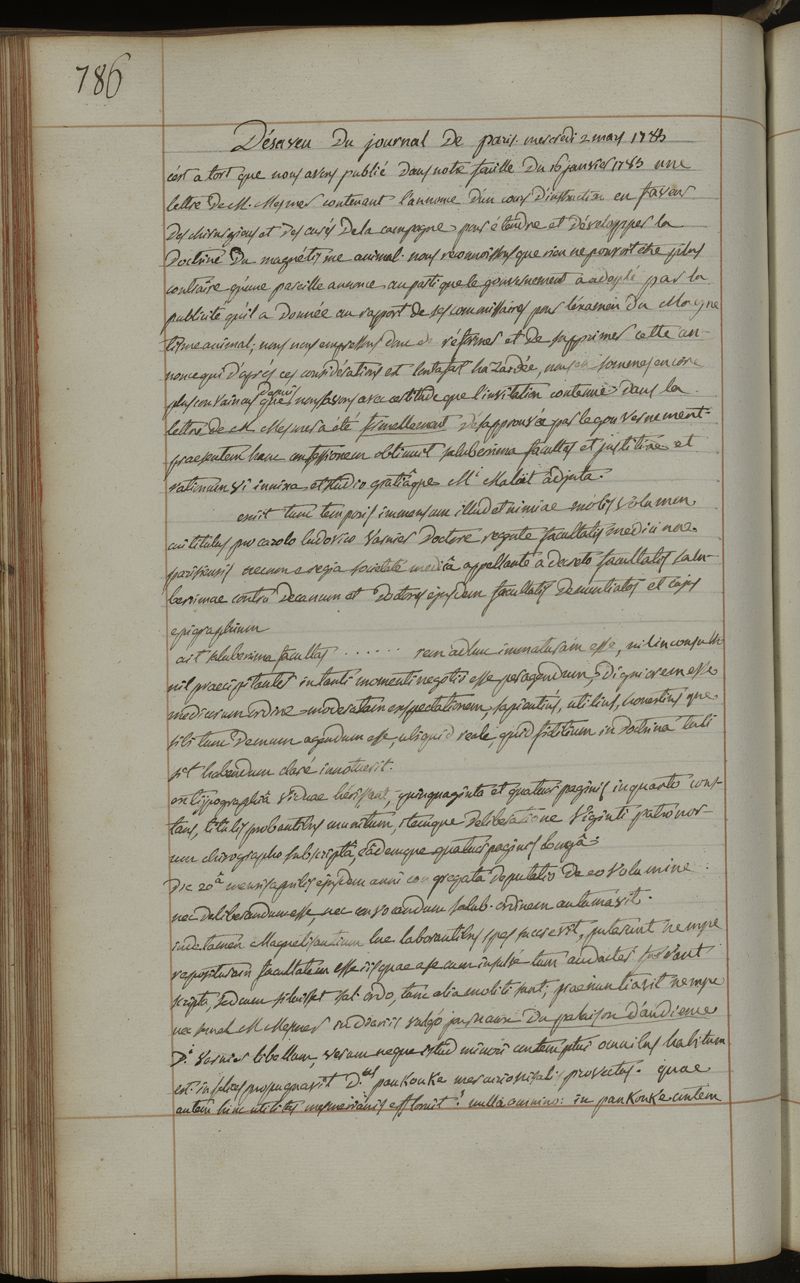 786
Désaveu Du journal De paris. mercredi 2 mars 1785
c'est a tort que nous avons publié Dans notre feuille Du 16 janvier 1785 une
lettre De M. Mesmer contenant l'annonce d'un cours D'instruction en faveur
Des chirurgiens et Des curés De la campagne pour étendre et Développer la
Doctrine Du magnétisme animal. nous reconnoissons que rien ne pouvoit etre plus
contraire qu'une pareille annonce au parti que le gouvernement a adopté par la
publicité qu'il a Donnée au rapport de ses commissaires pour l'examen Du Magne
tisme animal; nous nous empressons donc de réformer et De supprimer cette an-
nonce qui D'après ces considérations est tout a fait hazardée, nous en sommes encore
plus convaincus Depuis que nous savons avec certitude que l'invitation contenue Dans la
lettre De M. Mesmer a été formellement Désapprouvée par le gouvernement.
praesentem hanc confessionem obtinuit saluberrima facultas et justitiae et
rationum vi innixa et studio gratiâque Mi Maloët adjuta.
emit tum temporis immensum illud et nimiae molis volumen
cui titulus pro carolo ludovico Varnier Doctore regente facultatis medicinae
parisiensis necnon e regia societate medicâ appellante a decreto facultatis salu-
berrimae contra Decanum et Doctores ejusdem facultatis denuntiatos et cujus
epigraphium
ait saluberrima facultas . . . . . . rem adhuc immaturam esse, nil inconsulto
nil praecipitanter in tanti momenti negotio esse peragendum, Digniorem esse
medicorum ordine moderatam expectationem, sapientius, utilius, honestius que
sibi tum Demum agendum esse, ubi quid reale, quid fictitium in Doctrina tali
sit habendum claré innotuerit.
ex typographiâ viduae hérissant, quinquaginta et quatuor paginis in quarto cons-
tans, titulis probantibus munitum, itemque Deliberatione viginti patronor-
um chirographo subscriptâ, eâdemque quatuor paginis longâ.
Die 20â mensis aprilis ejusdem anni congregata Deputatio De eo volumine
nec deliberandum esse, nec convocandum salub. ordinem autumavit.
inde tamen Magnetisantium lue laborantibus spes successit, putarunt nempe
reposituram facultatem esse iis quae a se cum insulse tum audacter fuerant
scripta, sed cum siluisset sal. ordo, tunc alia moliti sunt, praenuntiavit nempe
nec semel M Mesmer in Diariis vulgó journaux Du palais ou D'audience
Di Varnier libellum, verum neque istud minori contemptui omnibus habitum
est. in scholis propugnavit D.us pankouke mercurio nisali provectus. quae
autem hinc utilitas mesmerianis effloruit? nulla omnino: in pankouke autem